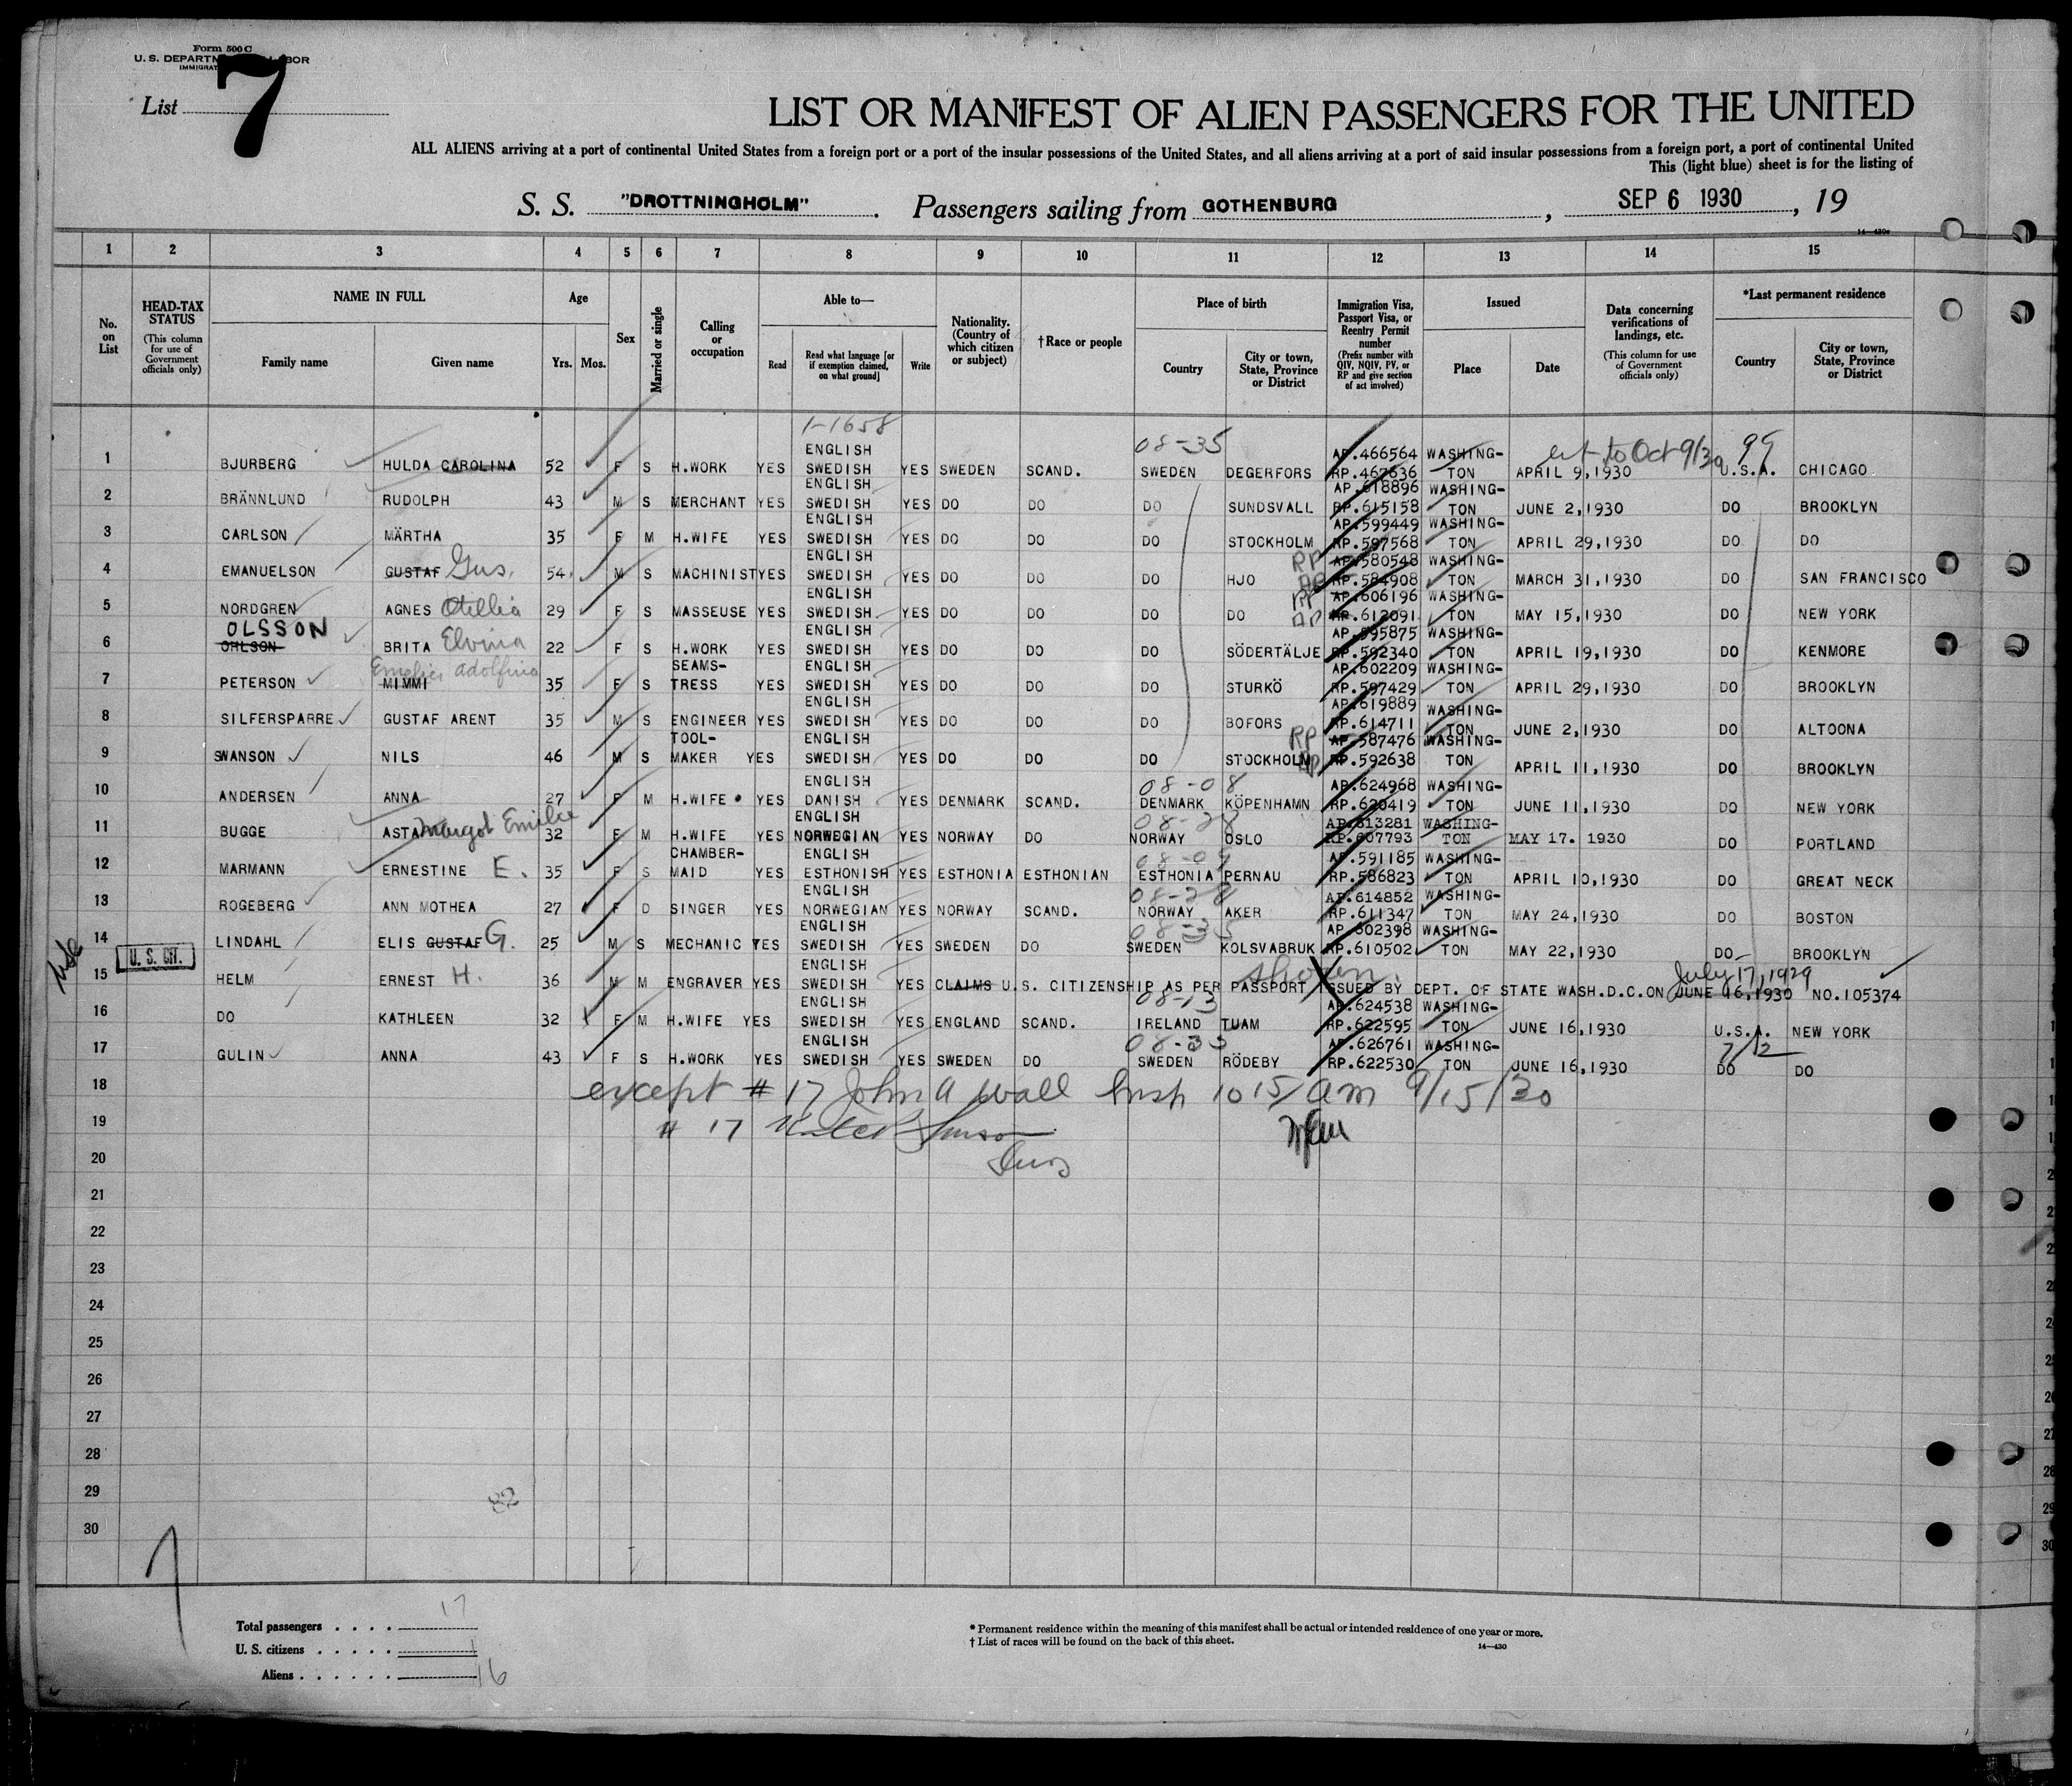 Form 500 C
U. S. DEPARTM LABOR
IMMIGRAT
List 7
LIST OR MANIFEST OF ALIEN PASSENGERS FOR THE UNITED
ALL ALIENS arriving at a port of continental United States from a foreign port or a port of the insular possessions of the United States, and all aliens arriving at a port of said insular possessions from a foreign port, a port of continental United
This (light blue) sheet is for the listing of
S. S. "DROTTNINGHOLM" Passengers sailing from GOTHENBURG, SEP 6 1930, 19
14—430a
1 2 3 4 5 6 7 8 9 10 11 12 13 14 15
No. on List
HEAD-TAX STATUS (This column for use of Government officials only)
NAME IN FULL Family name Given name
Age Yrs. Mos.
Sex
Married or single
Calling or occupation
Able to— Read Read what language [or if exemption claimed, on what ground] Write
Nationality. (Country of which citizen or subject)
†Race or people
Place of birth Country City or town, State, Province or District
Immigration Visa, Passport Visa, or Reentry Permit number (Prefix number with QIV, NQIV, PV, or RP and give section of act involved)
Issued Place Date
Data concerning verifications of landings, etc. (This column for use of Government officials only)
*Last permanent residence Country City or town, State, Province or District
1-1658 08-35 ext to Oct 9/30 99
1 BJURBERG HULDA CAROLINA 52 F S H.WORK YES ENGLISH SWEDISH YES SWEDEN SCAND. SWEDEN DEGERFORS AP.466564 RP.467636 WASHING-TON APRIL 9,1930 U.S.A. CHICAGO
2 BRÄNNLUND RUDOLPH 43 M S MERCHANT YES ENGLISH SWEDISH YES DO DO DO SUNDSVALL AP.618896 RP.615158 WASHING-TON JUNE 2,1930 DO BROOKLYN
3 CARLSON MÄRTHA 35 F M H.WIFE YES ENGLISH SWEDISH YES DO DO DO STOCKHOLM AP.599449 RP.597568 WASHING-TON APRIL 29,1930 DO DO
4 EMANUELSON GUSTAF Gus. 54 M S MACHINIST YES ENGLISH SWEDISH YES DO DO DO HJO RP AP AP.580548 RP.584908 WASHING-TON MARCH 31,1930 DO SAN FRANCISCO
5 NORDGREN AGNES Otillia 29 F S MASSEUSE YES ENGLISH SWEDISH YES DO DO DO DO RP AP AP.606196 RP.612091 WASHING-TON MAY 15,1930 DO NEW YORK
OLSSON
6 OHLSON BRITA Elvina 22 F S H.WORK YES ENGLISH SWEDISH YES DO DO DO SÖDERTÄLJE AP.595875 RP.592340 WASHING-TON APRIL 19,1930 DO KENMORE
Emelie adolfina
7 PETERSON MIMMI 35 F S SEAMS-TRESS YES ENGLISH SWEDISH YES DO DO DO STURKÖ AP.602209 RP.597429 WASHING-TON APRIL 29,1930 DO BROOKLYN
8 SILFERSPARRE GUSTAF ARENT 35 M S ENGINEER YES ENGLISH SWEDISH YES DO DO DO BOFORS AP.619889 RP.614711 WASHING-TON JUNE 2,1930 DO ALTOONA
9 SWANSON NILS 46 M S TOOL-MAKER YES ENGLISH SWEDISH YES DO DO DO STOCKHOLM RP AP AP.587476 RP.592638 WASHING-TON APRIL 11,1930 DO BROOKLYN
08-08
10 ANDERSEN ANNA 27 F M H.WIFE YES ENGLISH DANISH YES DENMARK SCAND. DENMARK KÖPENHAMN AP.624968 RP.620419 WASHING-TON JUNE 11,1930 DO NEW YORK
08-28
11 BUGGE ASTA Margot Emilie 32 F M H.WIFE YES ENGLISH NORWEGIAN YES NORWAY DO NORWAY OSLO AP.613281 RP.607793 WASHING-TON MAY 17. 1930 DO PORTLAND
08-09
12 MARMANN ERNESTINE E. 35 F S CHAMBER-MAID YES ENGLISH ESTHONISH YES ESTHONIA ESTHONIAN ESTHONIA PERNAU AP.591185 RP.586823 WASHING-TON APRIL 10,1930 DO GREAT NECK
08-28
13 ROGEBERG ANN MOTHEA 27 F D SINGER YES ENGLISH NORWEGIAN YES NORWAY SCAND. NORWAY AKER AP.614852 RP.611347 WASHING-TON MAY 24,1930 DO BOSTON
08-35
14 LINDAHL ELIS GUSTAF G. 25 M S MECHANIC YES ENGLISH SWEDISH YES SWEDEN DO SWEDEN KOLSVABRUK AP.602398 RP.610502 WASHING-TON MAY 22,1930 DO BROOKLYN
U. S. CIT.
shown July 17, 1929
15 HELM ERNEST H. 36 M M ENGRAVER YES ENGLISH SWEDISH YES CLAIMS U.S. CITIZENSHIP AS PER PASSPORT ISSUED BY DEPT. OF STATE WASH.D.C.ON JUNE 16,1930 NO.105374
08-13
16 DO KATHLEEN 32 F M H.WIFE YES ENGLISH SWEDISH YES ENGLAND SCAND. IRELAND TUAM AP.624538 RP.622595 WASHING-TON JUNE 16,1930 U.S.A. NEW YORK
08-35 7/12
17 GULIN ANNA 43 F S H.WORK YES ENGLISH SWEDISH YES SWEDEN DO SWEDEN RÖDEBY AP.626761 RP.622530 WASHING-TON JUNE 16,1930 DO DO
18 except # 17 John A Wall Insp 10 15/am 9/15/30
19 # 17
20
21
22
23
24
25
26
27
28
29
82
30
Total passengers 17
U. S. citizens 1
Aliens 16
* Permanent residence within the meaning of this manifest shall be actual or intended residence of one year or more.
† List of races will be found on the back of this sheet.
14—430